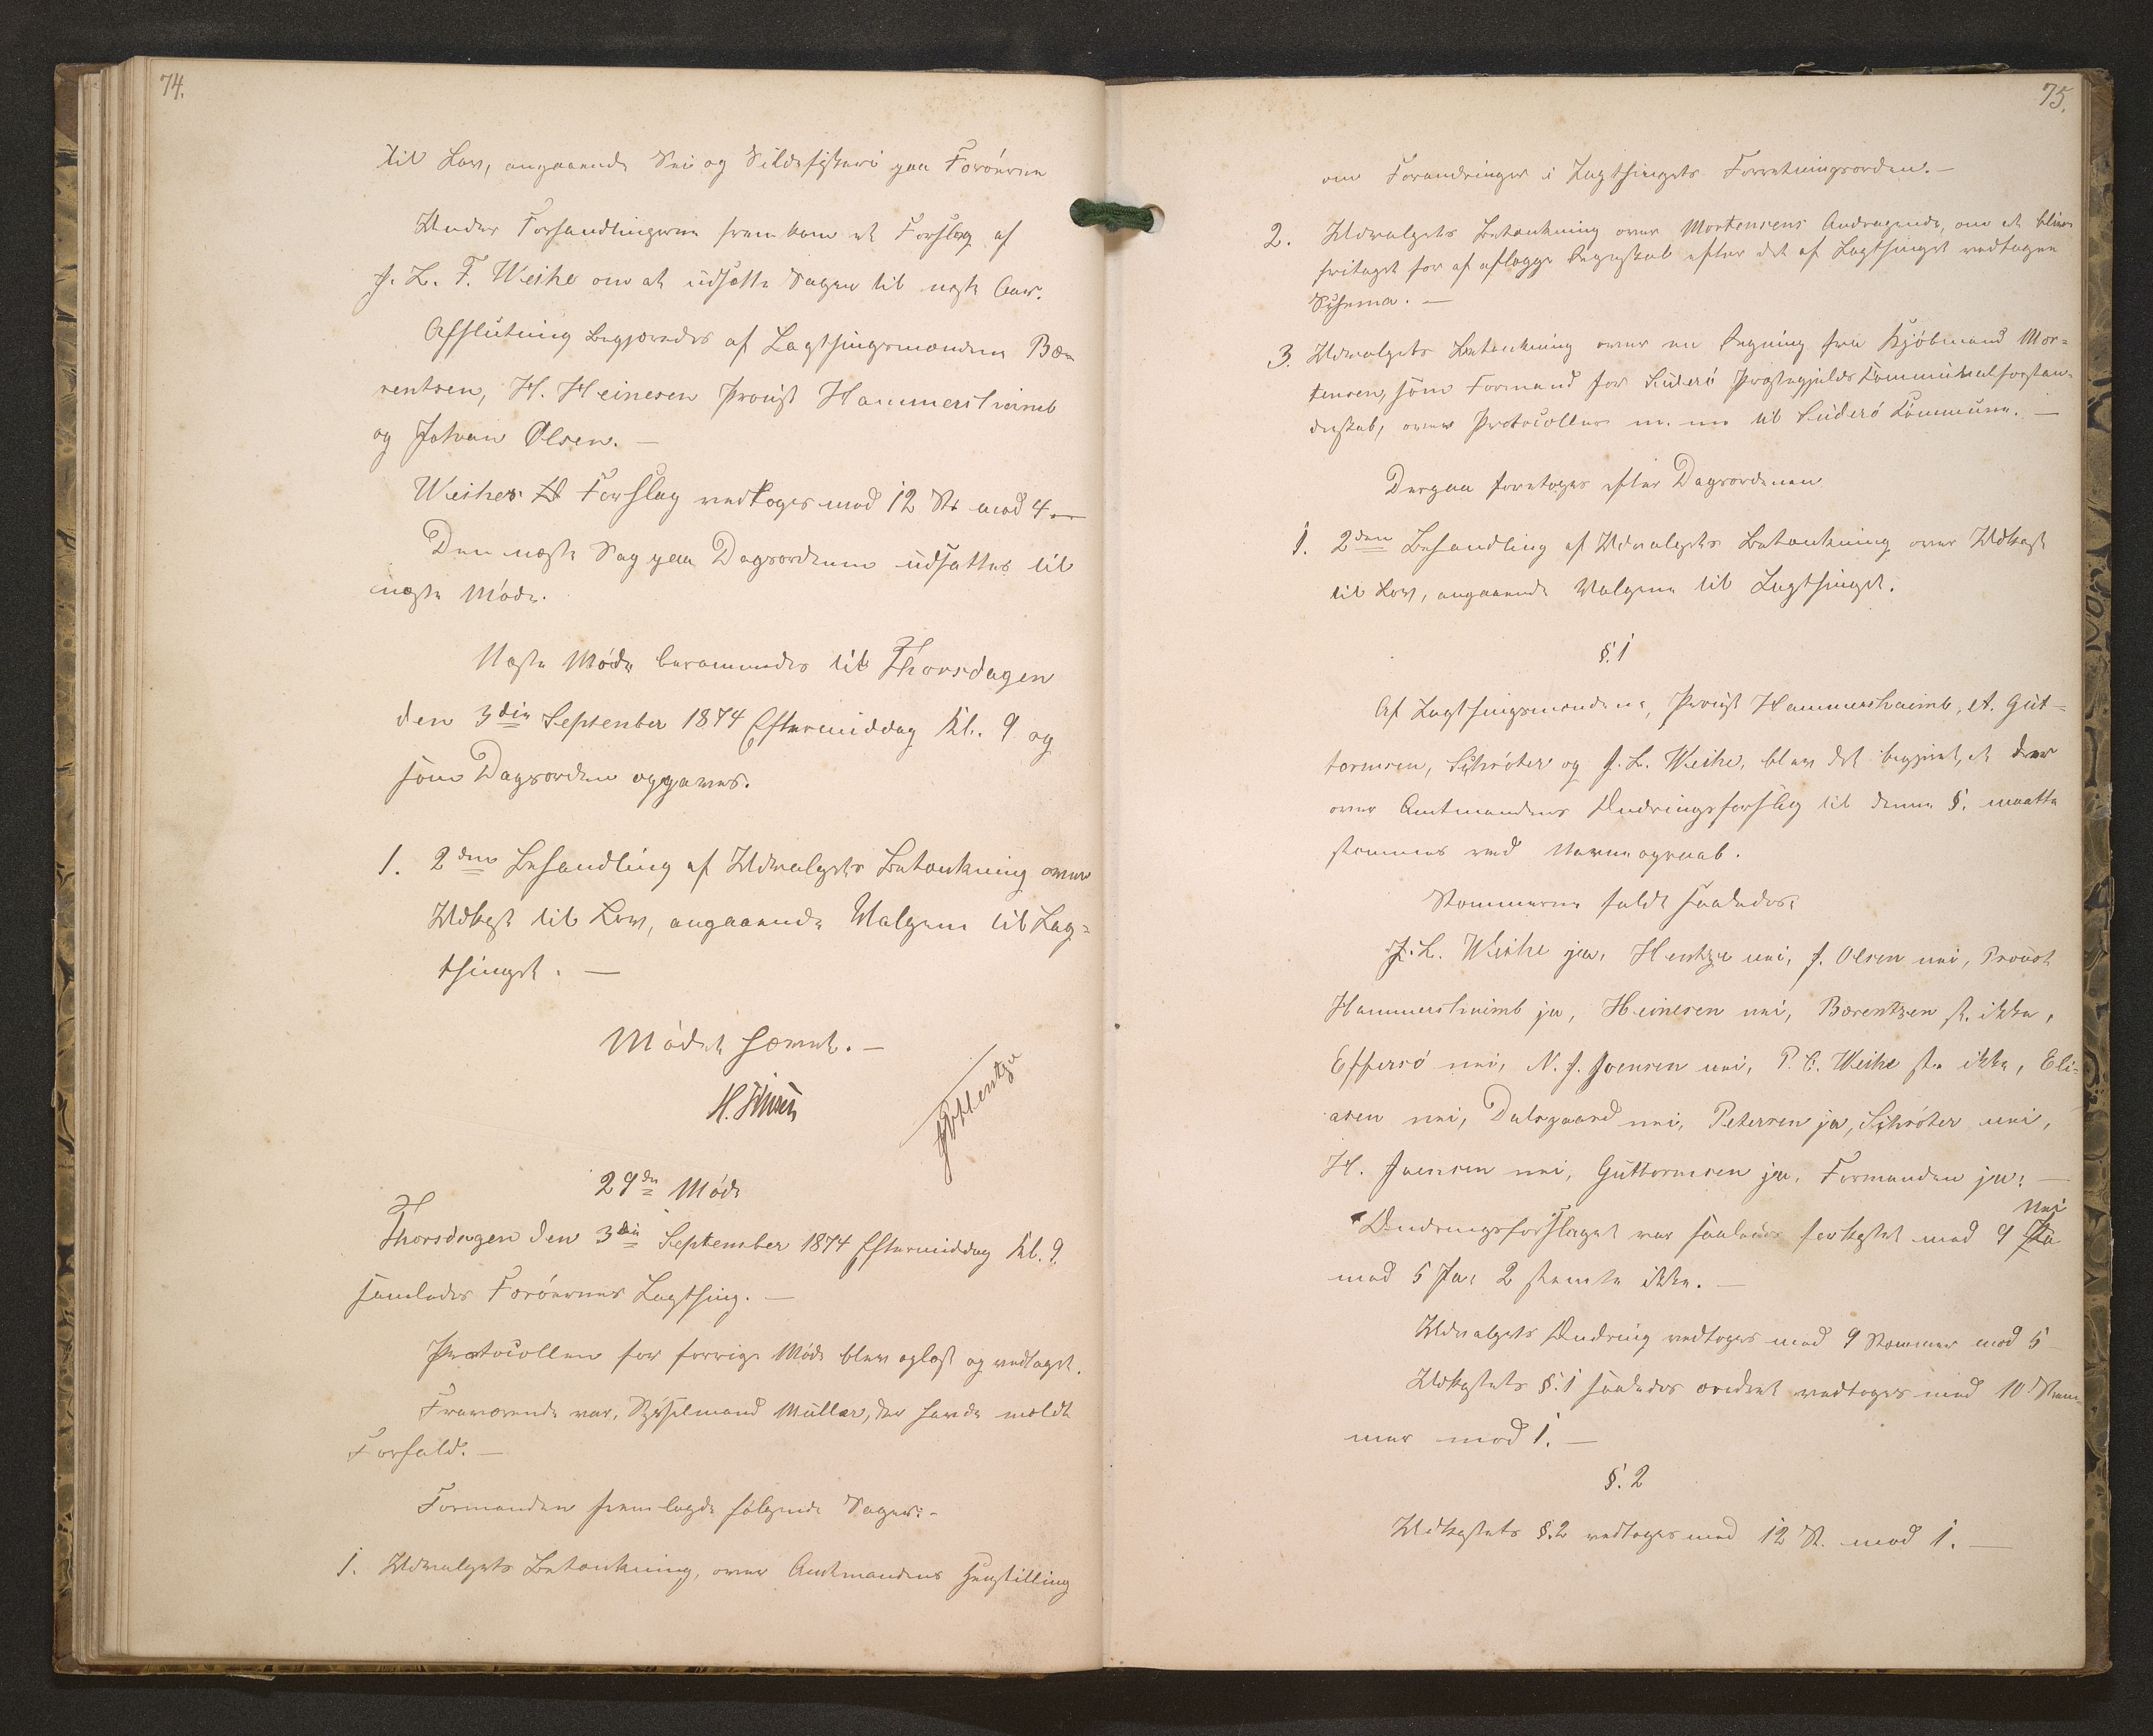 74.
til Lov, angaaende Sei og Sildefiskeri paa Færøerne
Under Forhandlingerne fremkom et Forslag af
J. L. F. Weihe om at udsætte Sagen til næste Aar.
Afslutning begjæredes af Lagthingsmændene Bæ-
rentsen, H. Heinesen Provst Hammershaimb
og Johan Olsen. —
Weihes Forslag vedtoges med 12 St. mod 4. —
Den næste Sag paa Dagsordenen udsattes til
næste Møde.
Næste Møde berammedes til Thorsdagen
den 3die September 1874 Eftermiddag Kl. 9 og
som Dagsorden opgaves.
1. 2den Behandling af Udvalgets Betænkning over
Udkast til Lov, angaaende Valgene til Lag-
thinget. —
Mødet hævet. —
H. Finsen
Hentze
29de Møde
Thorsdagen den 3die September 1874 Eftermiddag Kl. 9.
samledes Færøernes Lagthing. —
Protocollen for forrige Møde blev oplæst og vedtaget.
Fraværende var, Sysselmand Müller, der havde meldt
Forfald. —
Formanden fremlagde følgende Sager: -
1. Udvalgets Betænkning, over Amtmandens Henstilling
75.
om Forandringer i Lagthingets Forretningsorden. —
2. Udvalgets Betænkning over Mortensens Andragende, om at blive
fritaget for at aflægge Regnskab efter det af Lagthinget vedtagne
Schema. —
3. Udvalgets Betænkning over en Regning fra Kjøbmand Mor-
tensen, som Formand for Suderø Præstegjelds Kommunalforstan-
derskab, over Protocoller m. m. til Suderø Kommune. —
Derpaa foretoges efter Dagsordenen
1. 2den Behandling af Udvalgets Betænkning over Udkast
til Lov, angaaende Valgene til Lagthinget.
§. 1
Af Lagthingsmændene, Provst Hammershaimb, A. Gut-
tormsen, Schrøter og J. L. Weihe, blev det begjært, at der
over Amtmandens Ændringsforslag til denne §. maatte
stemmes ved Navneopraab.
Stemmerne faldt saaledes:
J. L. Weihe ja, Hentze nei, J. Olsen nei, Provst
Hammershaimb ja, Heinesen nei, Bærentsen st. ikke,
Effersø nei, N. J. Joensen nei, P. C. Weihe st. ikke, Eli-
asen nei, Dalsgaard nei, Petersen ja, Schrøter nei,
H. Joensen nei, Guttormsen ja, Formanden ja: —
Nei
Ændringsforslaget var saaledes forkastet med 9 Ja
mod 5 Ja; 2 stemte ikke. —
Udvalgets Ændring vedtoges med 9 Stemmer mod 5
Udkastets §. 1 saaledes ændret vedtoges med 10 Stem-
mer mod 1. —
§. 2
Udkastets §. 2 vedtoges med 12 St. mod 1. —